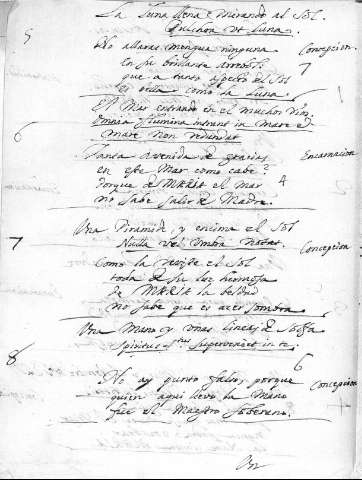 La Luna llena Mirando al Sol.
Pulchra ut Luna.
5
No allaras mengua ninguna
Concepcion.
en su brillante arrebol
7
que a tanto aspecto el Sol
es bella como la Luna.
El Mar entrando en el muchos Rios
omnia flumina intrant in mare et
mare non redundat
6
Tanta avenida de gracias
Encarnacion
en este Mar como cabe?
Porque de MARIA el mar
4
no sabe salir de Madre.
Una Piramide y encima el Sol
7
Nulla vel umbra notae.
Concepcion
Como la reviste el Sol
toda de su luz hermosa
de MARIA la beldad
no sabe que es acer sombra
Una Mano y unas lineas de Solfa
Spiritus Stus superveniet in te.
8
6
No ay punto falso, porque
Concepcion
quien aqui llevò la Mano
fue el Maestro Soberano.